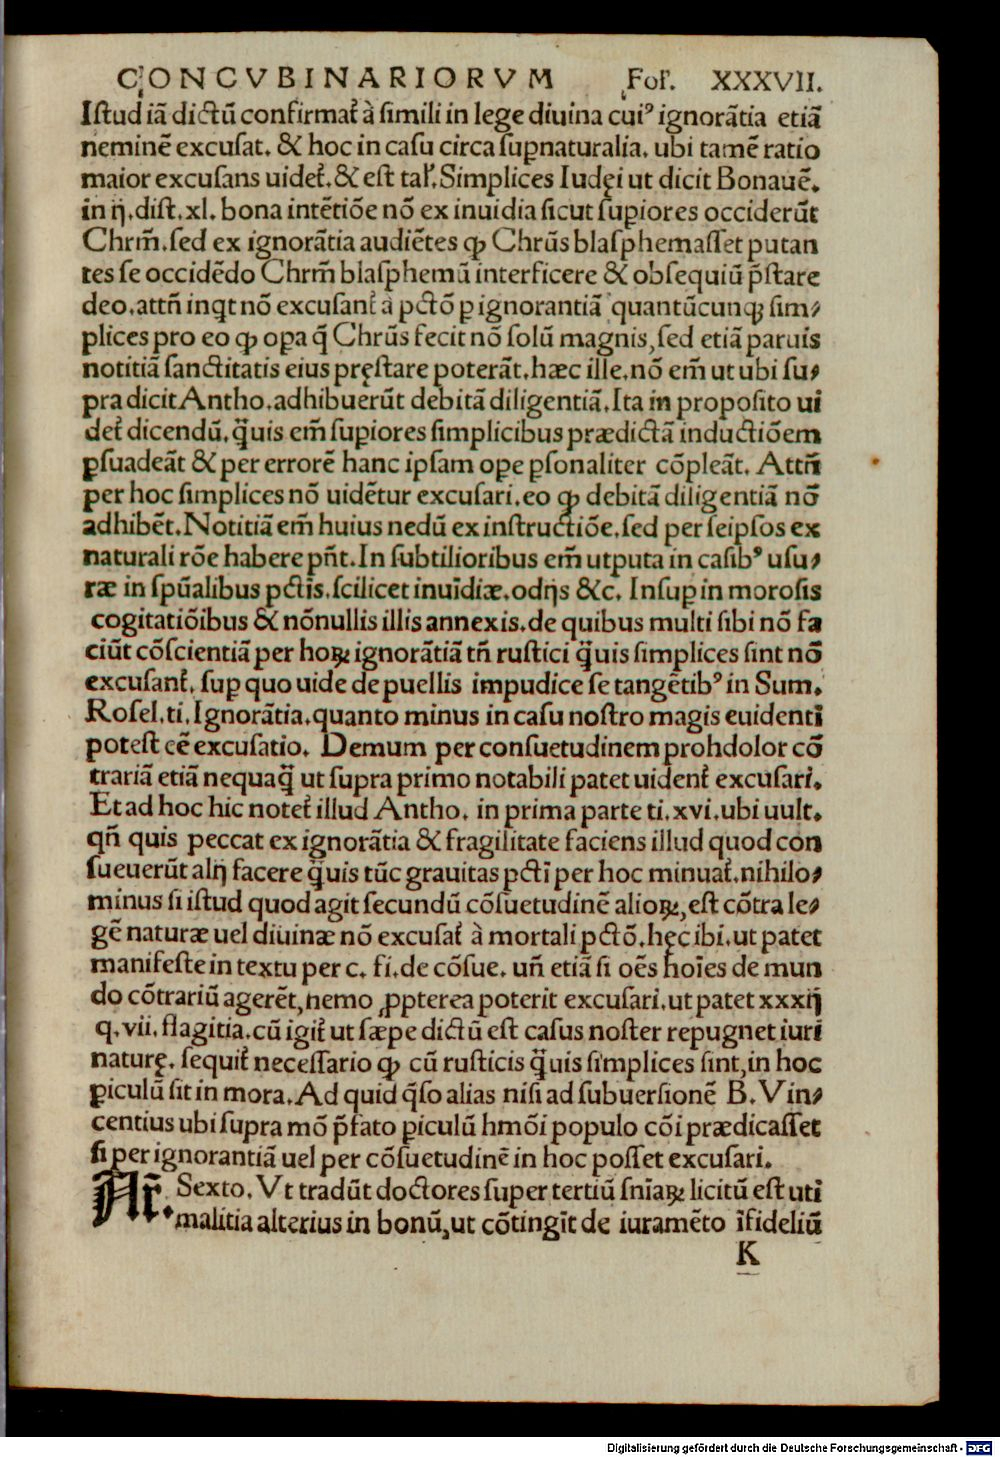 CONCVBINARIORVM Fol'. XXXVII.
Iſtud iā dictū confirmat᷑ à ſimili in lege diuina cuiꝰ ignorātia etiā
neminē excuſat. & hoc in caſu circa ſupnaturalia. ubi tamē ratio
maior excuſans uidet᷑. & eſt tal'. Simplices Iudęi ut dicit Bonauē.
in ij. diſt. xl. bona intētiōe nō ex inuidia ſicut ſupiores occiderūt
Chrm̄. ſed ex ignorātia audiētes ꝙ Chrūs blaſphemaſſet putan
tes ſe occidēdo Chrm̄ blaſphemū interficere & obſequiū p̄ſtare
deo. attn̄ inqt nō excuſant᷑ à pctō ꝑ ignorantiā quantūcunqꝫ ſim⸗
plices pro eo ꝙ oꝑa q̄ Chrūs fecit nō ſolū magnis, ſed etiā paruis
notitiā ſanctitatis eius pręſtare poterāt. hæc ille. nō em̄ ut ubi ſu⸗
pra dicit Antho. adhibuerūt debitā diligentiā. Ita in propoſito ui
det᷑ dicendū. q̄uis em̄ ſupiores ſimplicibus prædictā inductiōem
ꝑſuadeāt & per errorē hanc ipſam ope ꝑſonaliter cōpleāt. Attn̄
per hoc ſimplices nō uidētur excuſari. eo ꝙ debitā diligentiā nō
adhibēt. Notitiā em̄ huius nedū ex inſtructiōe. ſed per ſeipſos ex
naturali rōe habere pn̄t. In ſubtilioribus em̄ utputa in caſibꝰ uſu⸗
ræ in ſpūalibus pctīs. ſcilicet inuīdiæ. odijs &c. Inſuꝑ in moroſis
cogitatiōibus & nōnullis illis annexis. de quibus multi ſibi nō fa
ciūt cōſcientiā per hoꝝ ignorātiā tn̄ ruſtici q̄uis ſimplices ſint nō
excuſant᷑. ſuꝑ quo uide de puellis impudice ſe tangētibꝰ in Sum.
Roſel. ti. Ignorātia. quanto minus in caſu noſtro magis euidenti
poteſt eē excuſatio. Demum per conſuetudinem prohdolor cō
trariā etiā nequaq̄ ut ſupra primo notabili patet uident᷑ excuſari.
Et ad hoc hic notet᷑ illud Antho. in prima parte ti. xvi. ubi uult.
qn̄ quis peccat ex ignorātia & fragilitate faciens illud quod con
ſueuerūt alij facere q̄uis tūc grauitas pctī per hoc minuat᷑. nihilo⸗
minus ſi iſtud quod agit ſecundū cōſuetudinē alioꝝ, eſt cōtra le⸗
gē naturæ uel diuinæ nō excuſat᷑ à mortali pctō. hęc ibi. ut patet
manifeſte in textu per c. fi. de cōſue. un̄ etiā ſi oēs hoīes de mun
do cōtrariū agerēt, nemo ꝓpterea poterit excuſari. ut patet xxxij
q. vii. flagitia. cū igit᷑ ut ſæpe dictū eſt caſus noſter repugnet iuri
naturę. ſequit᷑ neceſſario ꝙ cū ruſticis q̄uis ſimplices ſint, in hoc
ꝑiculū ſit in mora. Ad quid q̄ſo alias niſi ad ſubuerſionē B. Vin⸗
centius ubi ſupra mō p̄fato ꝑiculū hmōi populo cōi prædicaſſet
ſi per ignorantiā uel per cōſuetudinē in hoc poſſet excuſari.
Ar̄. Sexto. Vt tradūt doctores ſuper tertiū ſnīaꝝ licitū eſt uti
malitia alterius in bonū, ut cōtingīt de iuramēto īfideliū
K
Digitalisierung gefördert durch die Deutsche Forschungsgemeinschaft - DFG